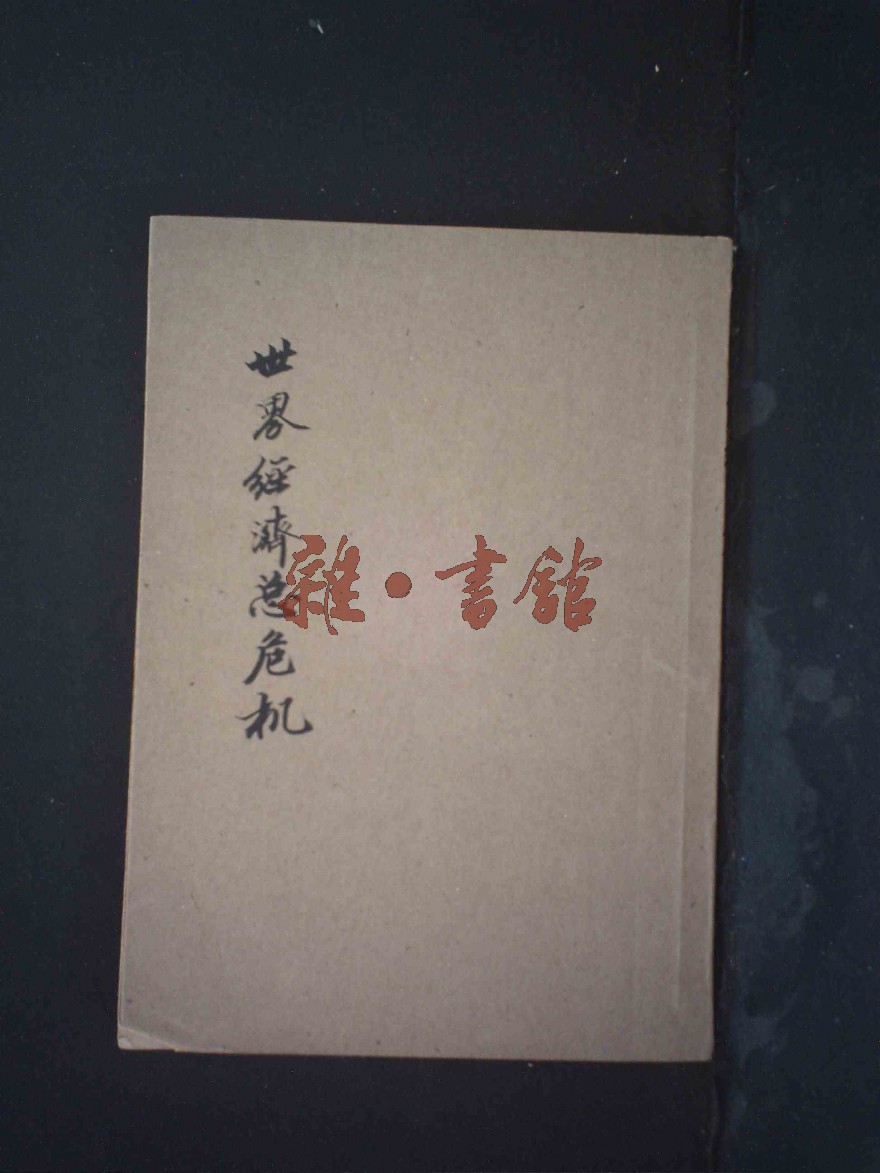 世界經濟总危机
雜·書館